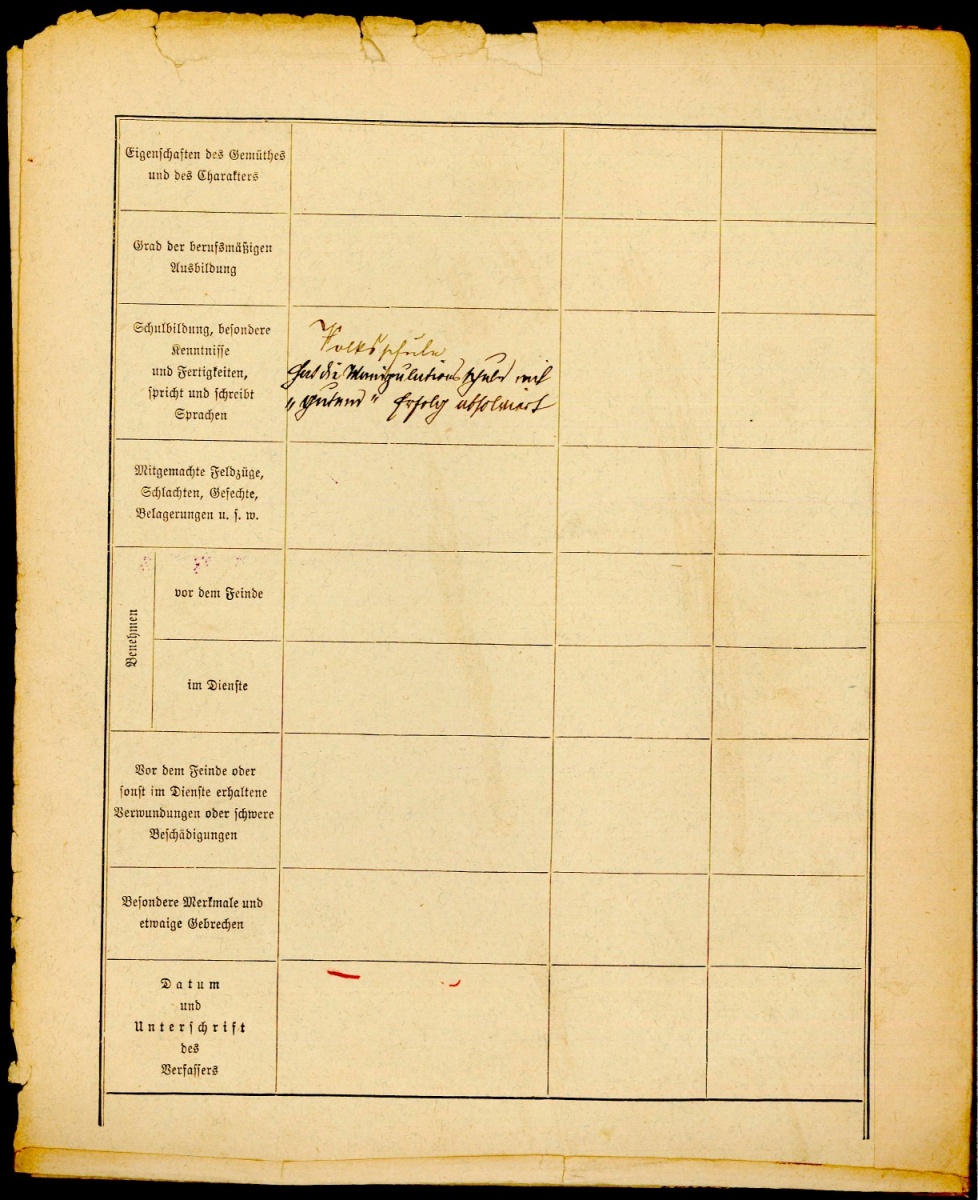 Eigenschaften des Gemüthes
und des Charakters
Grad der berufsmäßigen
Ausbildung
Schulbildung, besondere
Kenntnisse
und Fertigkeiten,
spricht und schreibt
Sprachen
Volksschule
hat die Manipulationsschule mit
"gutem" Erfolg absolviert
Mitgemachte Feldzüge,
Schlachten, Gefechte,
Belagerungen u. s. w.
Benehmen
vor dem Feinde
im Dienste
Vor dem Feinde oder
sonst im Dienste erhaltene
Verwundungen oder schwere
Beschädigungen
Besondere Merkmale und
etwaige Gebrechen
Datum
und
Unterschrift
des
Verfassers